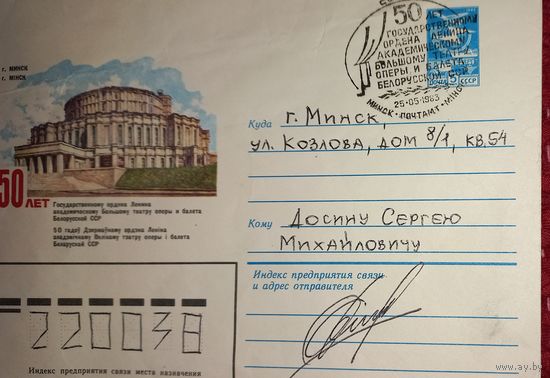 г. МИНСК
г. МІНСК
50 ЛЕТ
Государственному ордена Ленина
академическому Большому театру оперы и балета
Белорусской ССР
50 гадоў Дзяржаўнаму ордэна Леніна
акадэмічнаму Вялікаму тэатру оперы і балета
Беларускай ССР
50 ЛЕТ
ГОСУДАРСТВЕННОМУ
ОРДЕНА ЛЕНИНА
АКАДЕМИЧЕСКОМУ
БОЛЬШОМУ ТЕАТРУ
ОПЕРЫ И БАЛЕТА
БЕЛОРУССКОЙ ССР
25·05·1983
МИНСК · ПОЧТАМТ · МІНСК
ПОЧТА СССР
Куда г. Минск,
ул. Козлова, дом 8/1, кв. 54
Кому Досину Сергею
Михайловичу
Индекс предприятия связи
и адрес отправителя
220038
Индекс предприятия связи места назначения
www.ay.by